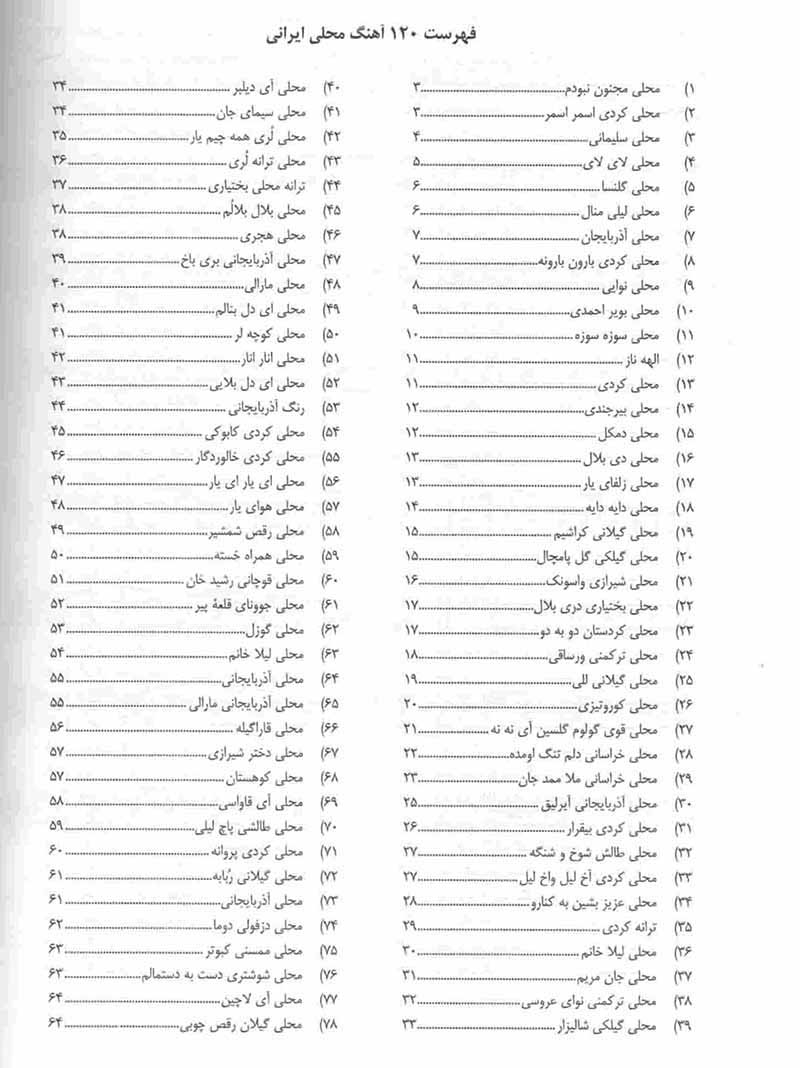 فهرست ۱۲۰ آهنگ محلی ایرانی
۱) محلی مجنون نبودم............................۳
۲) محلی کردی اسمر اسمر............................۳
۳) محلی سلیمانی............................۴
۴) محلی لای لای............................۵
۵) محلی گلنسا............................۶
۶) محلی لیلی منال............................۶
۷) محلی آذربایجان............................۷
۸) محلی کردی بارون بارونه............................۷
۹) محلی نوایی............................۸
۱۰) محلی بویر احمدی............................۹
۱۱) محلی سوزه سوزه............................۱۰
۱۲) الهه ناز............................۱۱
۱۳) محلی کردی............................۱۱
۱۴) محلی بیرجندی............................۱۲
۱۵) محلی دمکل............................۱۲
۱۶) محلی دی بلال............................۱۳
۱۷) محلی زلفای یار............................۱۳
۱۸) محلی دایه دایه............................۱۴
۱۹) محلی گیلانی کراشیم............................۱۵
۲۰) محلی گیلکی گل پامچال............................۱۵
۲۱) محلی شیرازی واسونک............................۱۶
۲۲) محلی بختیاری دری بلال............................۱۷
۲۳) محلی کردستان دو به دو............................۱۷
۲۴) محلی ترکمنی ورساقی............................۱۸
۲۵) محلی گیلانی للی............................۱۹
۲۶) محلی کوروتیزی............................۲۰
۲۷) محلی قوی گولوم گلسین آی نه نه............................۲۱
۲۸) محلی خراسانی دلم تنگ اومده............................۲۲
۲۹) محلی خراسانی ملا ممد جان............................۲۳
۳۰) محلی آذربایجانی آیرلیق............................۲۵
۳۱) محلی کردی بیقرار............................۲۶
۳۲) محلی طالش شوخ و شنگه............................۲۷
۳۳) محلی کردی آخ لیل واخ لیل............................۲۷
۳۴) محلی عزیز بشین به کنارو............................۲۸
۳۵) ترانه کردی............................۲۹
۳۶) محلی لیلا خانم............................۳۰
۳۷) محلی جان مریم............................۳۱
۳۸) محلی ترکمنی نوای عروسی............................۳۲
۳۹) محلی گیلکی شالیزار............................۳۳
۴۰) محلی آی دیلبر............................۳۴
۴۱) محلی سیمای جان............................۳۴
۴۲) محلی لُری همه چیم یار............................۳۵
۴۳) محلی ترانه لُری............................۳۶
۴۴) ترانه محلی بختیاری............................۳۷
۴۵) محلی بلال بلالُم............................۳۸
۴۶) محلی هجری............................۳۸
۴۷) محلی آذربایجانی بری باخ............................۳۹
۴۸) محلی مارالی............................۴۰
۴۹) محلی ای دل بنالم............................۴۱
۵۰) محلی کوچه لر............................۴۱
۵۱) محلی انار انار............................۴۲
۵۲) محلی ای دل بلایی............................۴۳
۵۳) رنگ آذربایجانی............................۴۴
۵۴) محلی کردی کابوکی............................۴۵
۵۵) محلی کردی خالوردگار............................۴۶
۵۶) محلی ای یار ای یار............................۴۷
۵۷) محلی هوای یار............................۴۸
۵۸) محلی رقص شمشیر............................۴۹
۵۹) محلی همراه خسته............................۵۰
۶۰) محلی قوچانی رشید خان............................۵۱
۶۱) محلی جوونای قلعهٔ پیر............................۵۲
۶۲) محلی گوزل............................۵۳
۶۳) محلی لیلا خانم............................۵۴
۶۴) محلی آذربایجانی............................۵۵
۶۵) محلی آذربایجانی مارالی............................۵۵
۶۶) محلی قاراگیله............................۵۶
۶۷) محلی دختر شیرازی............................۵۷
۶۸) محلی کوهستان............................۵۷
۶۹) محلی آی قاواسی............................۵۸
۷۰) محلی طالشی پاچ لیلی............................۵۹
۷۱) محلی کردی پروانه............................۶۰
۷۲) محلی گیلانی رُبابه............................۶۱
۷۳) محلی آذربایجانی............................۶۱
۷۴) محلی دزفولی دوما............................۶۲
۷۵) محلی ممسنی کبوتر............................۶۳
۷۶) محلی شوشتری دست به دستمالم............................۶۳
۷۷) محلی آی لاچین............................۶۴
۷۸) محلی گیلان رقص چوبی............................۶۴